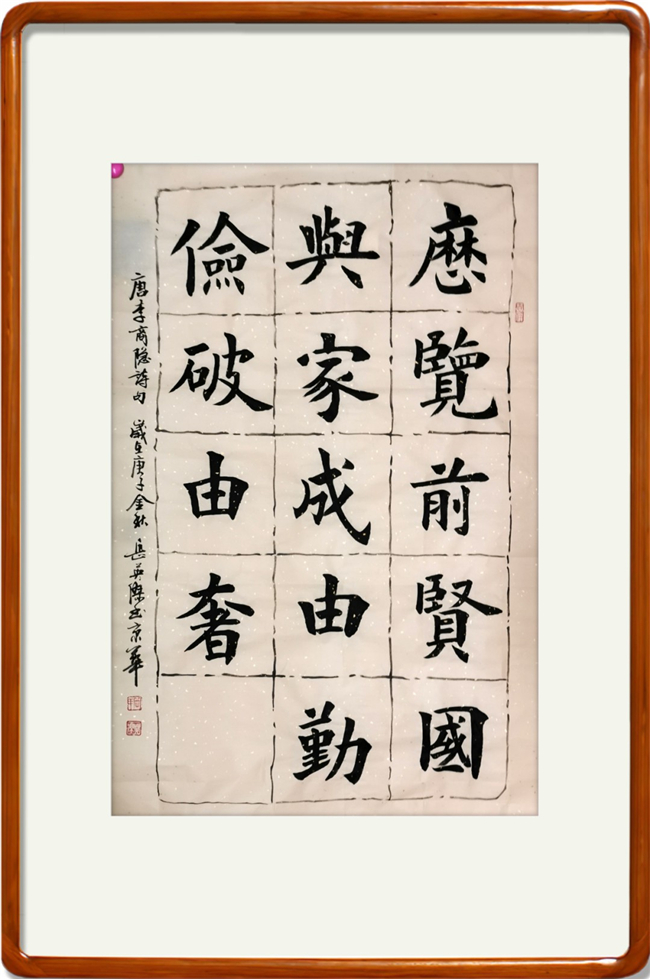 懕覽前賢國
與家成由勤
儉破由奢
唐李商隐詩句 歲在庚子金秋 岳英傑书京華